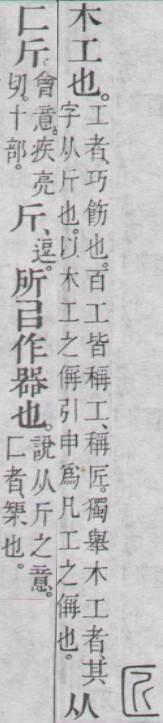 匠
木工也。工者、巧飭也。百工皆稱工、稱匠。獨舉木工者、其字从斤也。以木工之偁引申爲凡工之偁也。从
匚斤。會意。疾亮切。十部。斤、逗。所㠯作器也。說从斤之意。匚者、榘也。